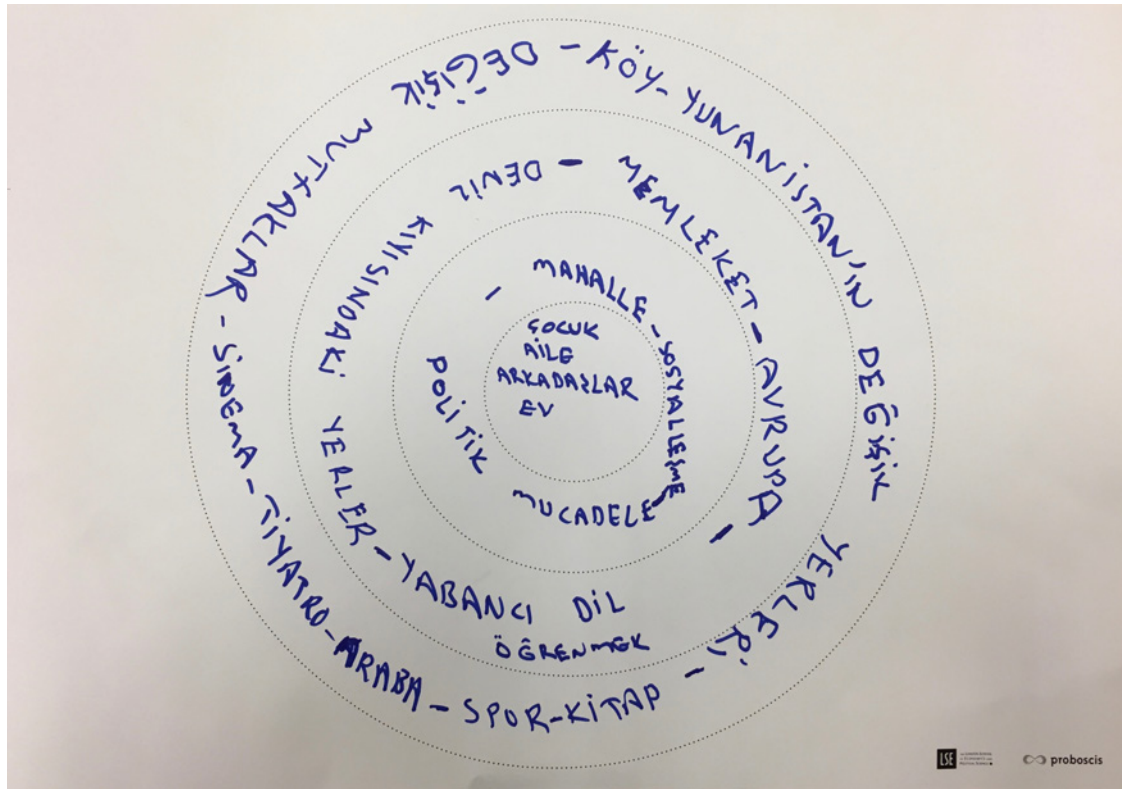 ÇOCUK
AİLE
ARKADAŞLAR
EV
MAHALLE - SOSYALLEŞME - POLİTİK MUCADELE -
MEMLEKET - AVRUPA - YABANCI DİL
ÖĞRENMEK
- DENİZ KIYISINDAKİ YERLER -
KÖY - YUNANİSTAN'IN DEĞİŞİK YERLERİ - SPOR - KİTAP - ARABA - TİYATRO - SİNEMA - DEĞİŞİK MUTFAKLAR -
LSE
proboscis